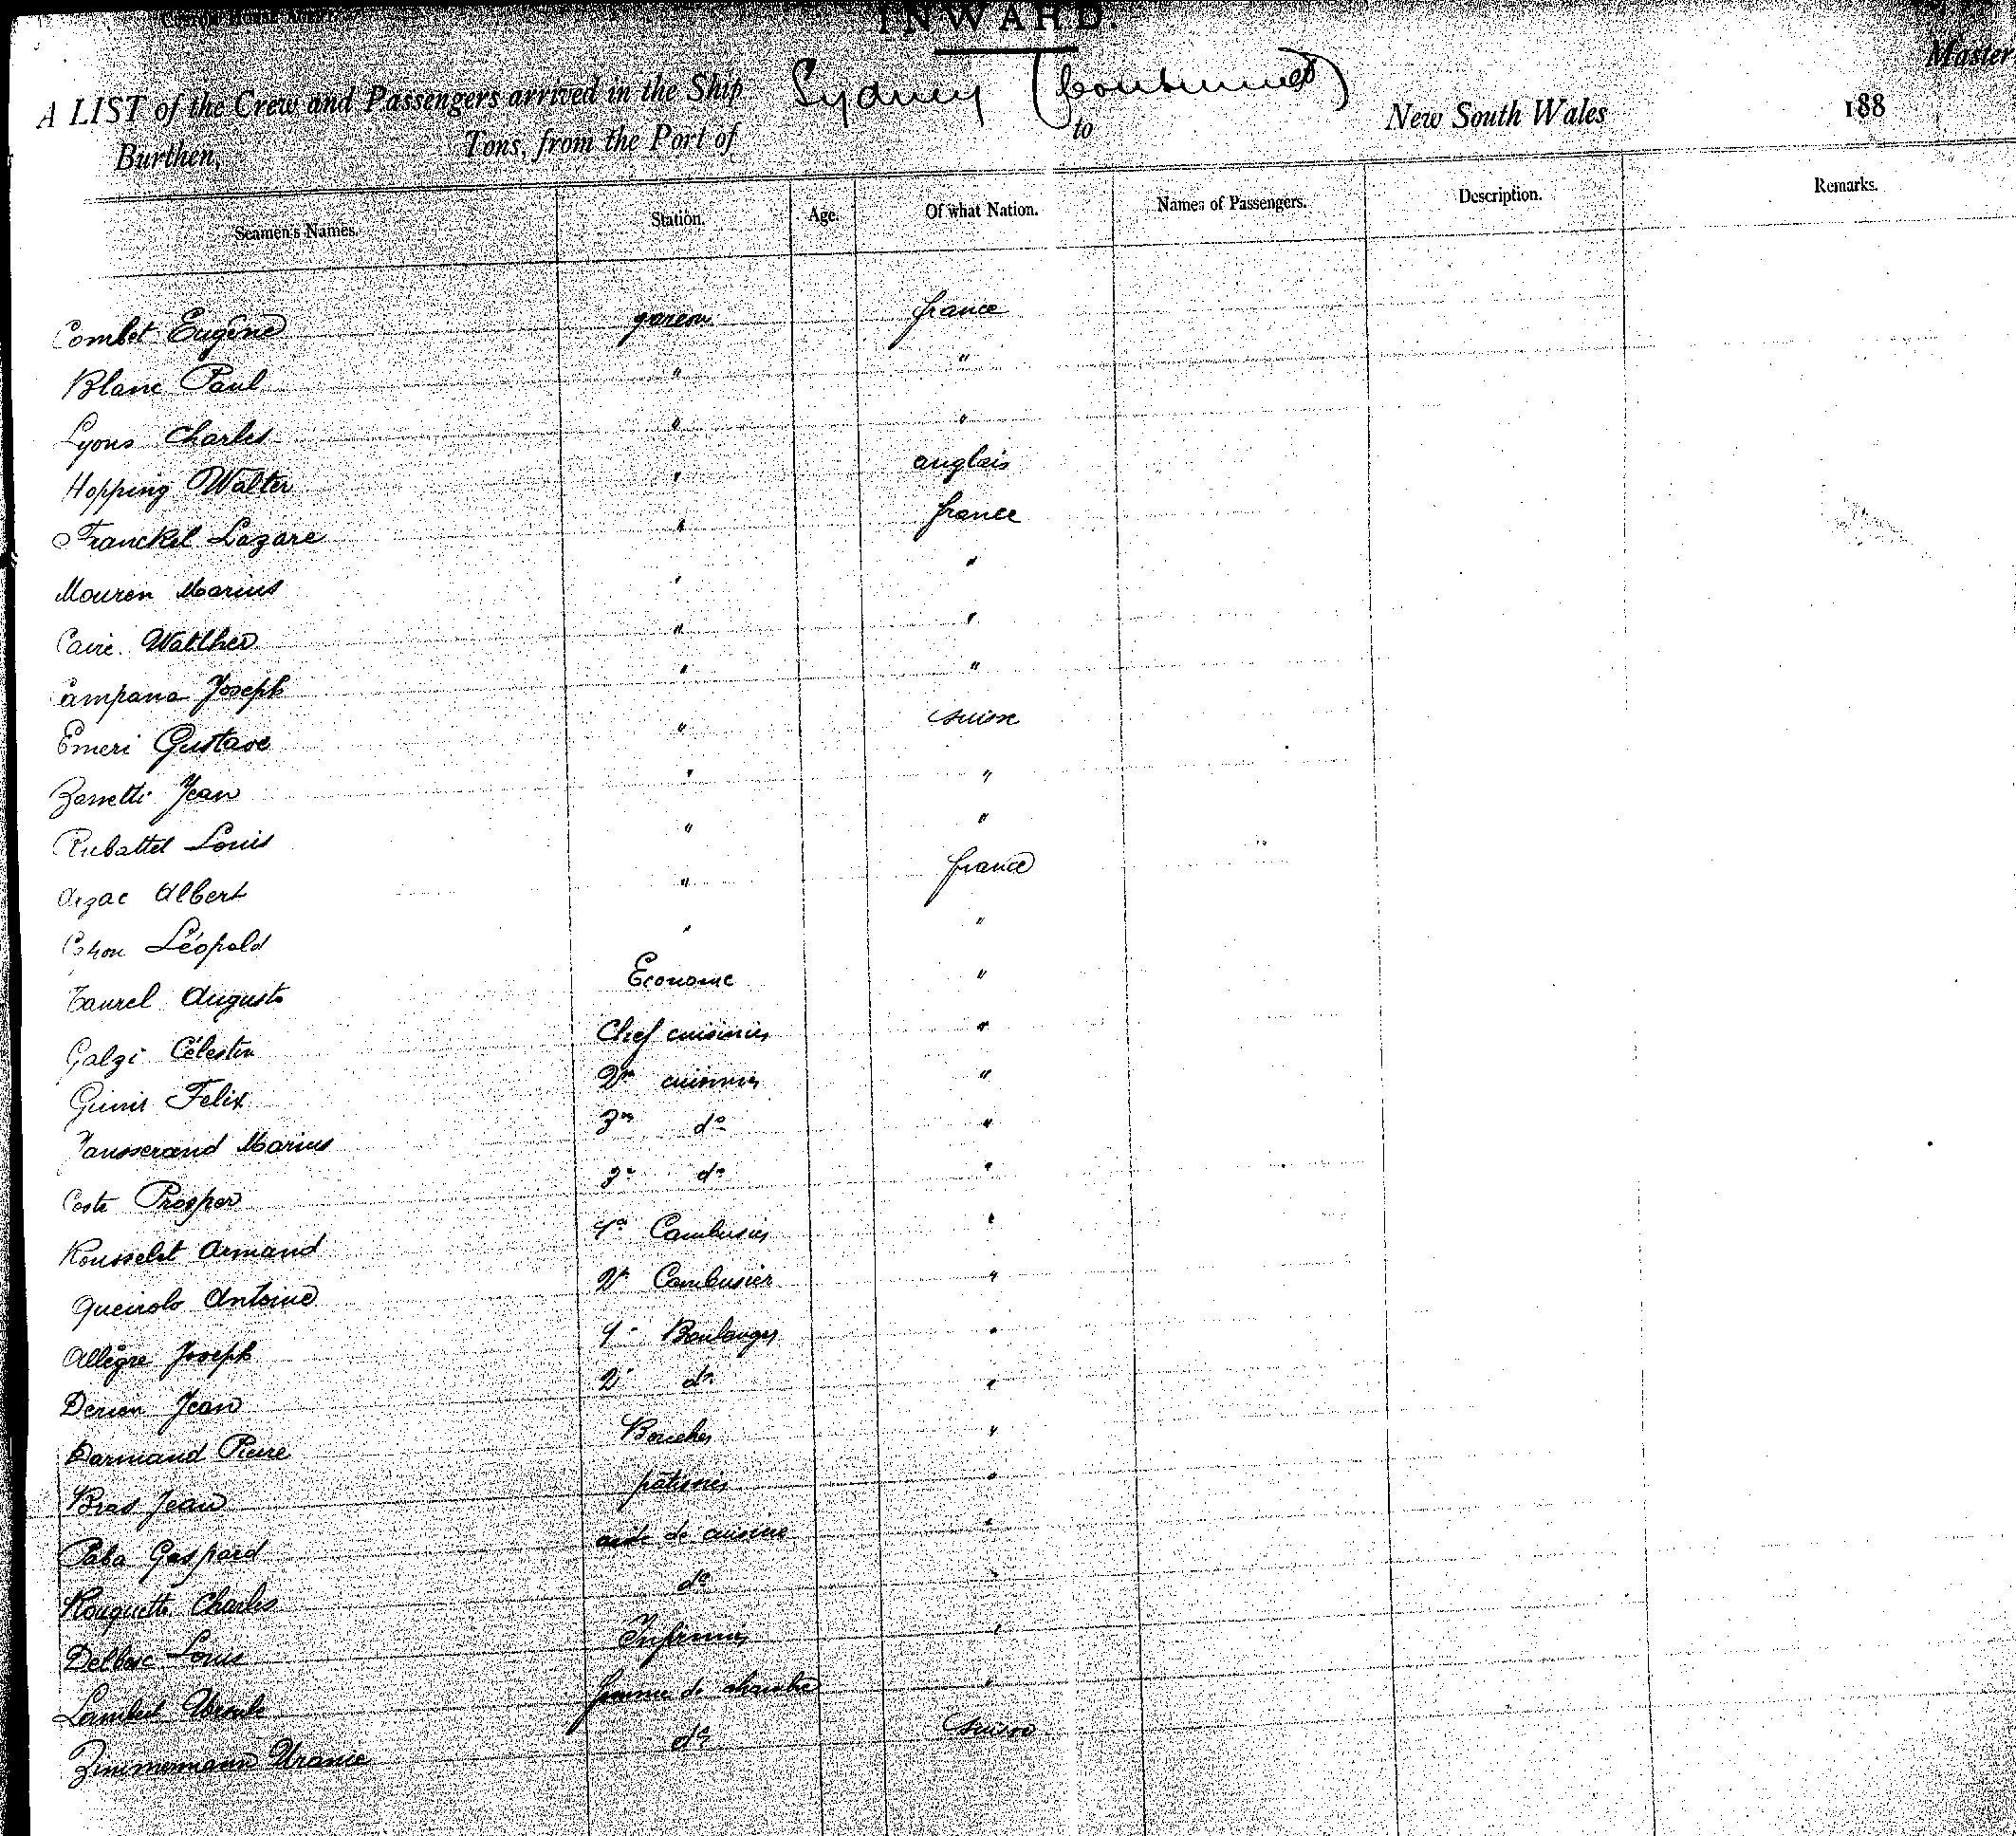 INWARD.
Master
A LIST of the Crew and Passengers arrived in the Ship Sydney (Continued)
Burthen, Tons, from the Port of to New South Wales 188
Seamen's Names. Station. Age. Of what Nation. Names of Passengers. Description. Remarks.
Combet Eugène garcon france
Blanc Paul " "
Lyons Charles " "
Hopping Walter " anglais
Franckel Lazare " france
Mouren Marius " "
Caire Walther " "
Campana Joseph " "
Emeri Gustave " suisse
Zanetti Jean " "
Rubattel Louis " "
Arzac Albert " france
Léopold " "
Taurel Auguste Econome "
Galzi Célestin Chef cuisinier "
Felix 2me cuisinier "
Marius 3me do "
Coste Prosper 3e do "
Rousselet Armand 1er Cambusier "
Queirolo Antoine 2e Cambusier "
Allègre Joseph 1er Boulanger "
Derien Jean 2e do "
Darmand Pierre Boucher "
Bras Jean patissier "
Paba Gaspard aide de cuisine "
Rouquette Charles do "
Louis Infirmier "
Lambert Ursule femme de chambre "
Zimmermann Uranie do suisse